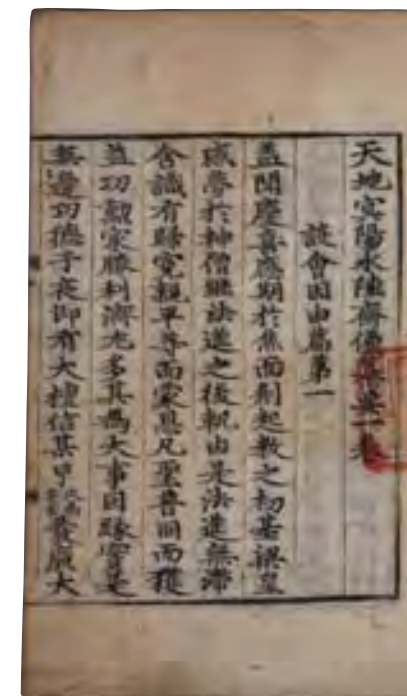 天地冥陽水陸齋儀纂要一卷
設會因由篇第一
蓋聞慶喜感期於焦面刱起教之初若梁皇
感夢於神僧躡法筵之後軌由是法筵無滯
含識有歸寃親平等而蒙恩凡聖普同而獲
益功勳寂勝利濟尤多其爲大事因緣寔是
無邊功德于夜卽有大檀信某甲發廣大